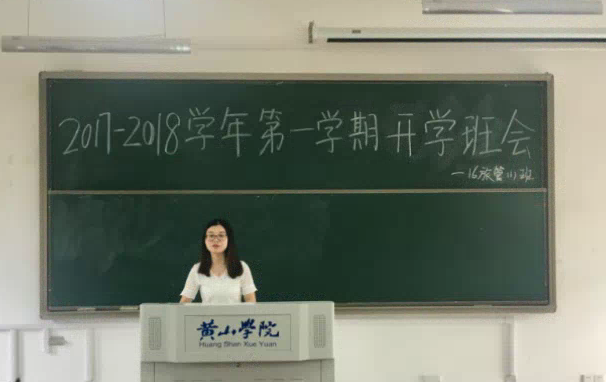 2017-2018学年第一学期开学班会
—16旅管(1)班
黄山學院
Huang Shan Xue Yuan